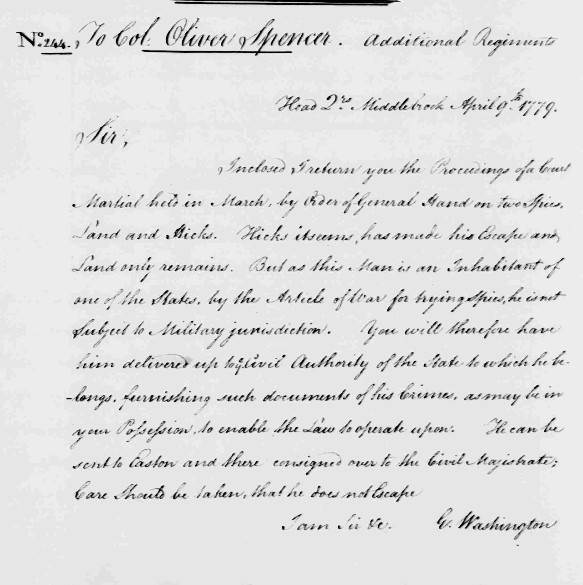 No. 244. To Col. Oliver Spencer. Additional Regiments
Head Qrs Middlebrook April 9th. 1779.
Sir,
Inclosed I return you the Proceedings of a Court
Martial held in March, by Order of General Hand on two Spies,
Land and Hicks. Hicks it seems, has made his Escape and
Land only remains. But as this Man is an Inhabitant of
one of the States, by the Article of War for trying Spies, he is not
Subject to Military jurisdiction. You will therefore have
him delivered up to ye. Civil Authority of the State to which he be-
-longs, furnishing such documents of his Crimes, as may be in
your Possession, to enable the Law to operate upon. He can be
sent to Easton and there consigned over to the Civil Majistrate;
Care Should be taken, that he does not Escape
I am Sir &c. G. Washington